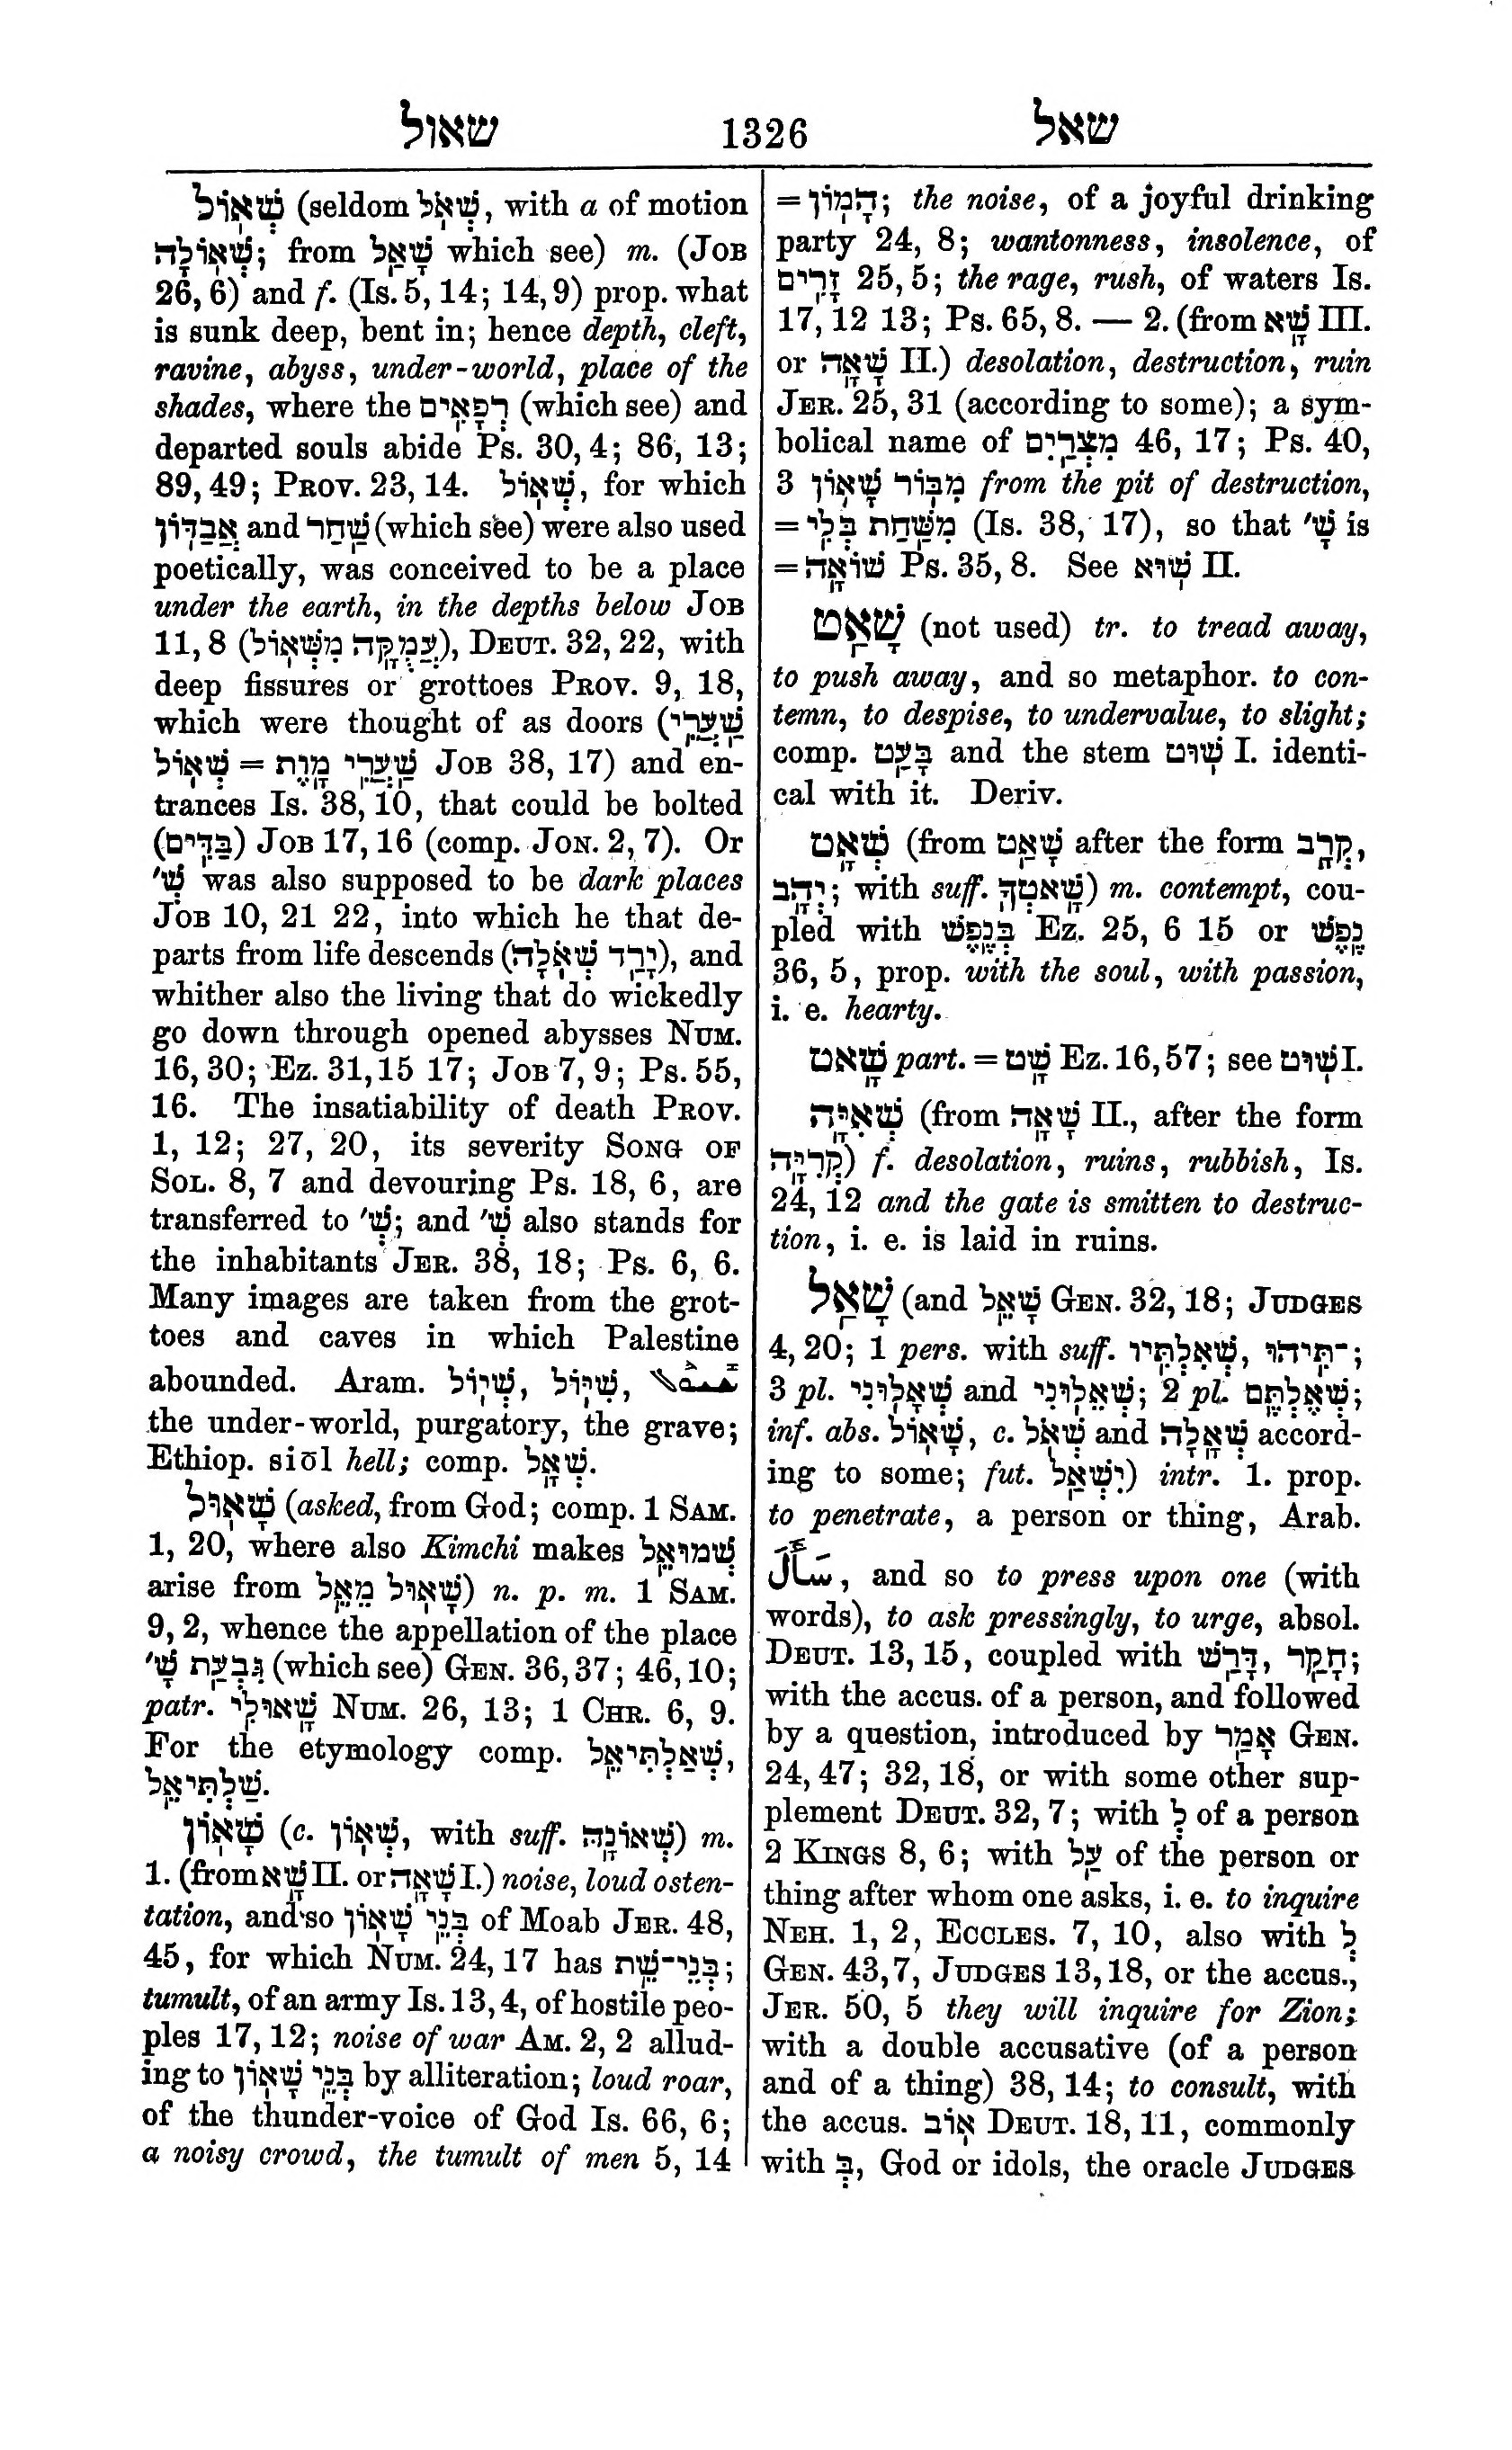 שאול 1326 שאל
שְׁאוֹל (seldom שְׁאֹל, with a of motion
שְׁאוֹלָה; from שָׁאַל which see) m. (JOB
26, 6) and f. (Is. 5, 14; 14, 9) prop. what
is sunk deep, bent in; hence depth, cleft,
ravine, abyss, under-world, place of the
shades, where the רְפָאִים (which see) and
departed souls abide Ps. 30, 4; 86, 13;
89, 49; PROV. 23, 14. שְׁאוֹל, for which
אֲבַדּוֹן and שַׁחַר (which see) were also used
poetically, was conceived to be a place
under the earth, in the depths below JOB
11, 8 (עֲמֻקָּה מִשְּׁאוֹל), DEUT. 32, 22, with
deep fissures or grottoes PROV. 9, 18,
which were thought of as doors (שַׁעֲרֵי
שְׁאוֹל = שַׁעֲרֵי מָוֶת JOB 38, 17) and en-
trances Is. 38, 10, that could be bolted
(בַּדִּים) JOB 17, 16 (comp. JON. 2, 7). Or
שְׁ' was also supposed to be dark places
JOB 10, 21 22, into which he that de-
parts from life descends (יָרַד שְׁאֹלָה), and
whither also the living that do wickedly
go down through opened abysses NUM.
16, 30; Ez. 31, 15 17; JOB 7, 9; Ps. 55,
16. The insatiability of death PROV.
1, 12; 27, 20, its severity SONG OF
SOL. 8, 7 and devouring Ps. 18, 6, are
transferred to שְׁ'; and שְׁ' also stands for
the inhabitants JER. 38, 18; Ps. 6, 6.
Many images are taken from the grot-
toes and caves in which Palestine
abounded. Aram. שְׁיוֹל, שִׁיּוֹל,
the under-world, purgatory, the grave;
Ethiop. siōl hell; comp. שְׁאָל.
שָׁאוּל (asked, from God; comp. 1 SAM.
1, 20, where also Kimchi makes שְׁמוּאֵל
arise from שָׁאוּל מֵאֵל) n. p. m. 1 SAM.
9, 2, whence the appellation of the place
גִּבְעַת שָׁ' (which see) GEN. 36, 37; 46, 10;
patr. שָׁאוּלִי NUM. 26, 13; 1 CHR. 6, 9.
For the etymology comp. שְׁאַלְתִּיאֵל,
שַׁלְתִּיאֵל.
שָׁאוֹן (c. שְׁאוֹן, with suff. שְׁאוֹנָהּ) m.
1. (from שָׁא II. or שָׁאָה I.) noise, loud osten-
tation, and so בְּנֵי שָׁאוֹן of Moab JER. 48,
45, for which NUM. 24, 17 has בְּנֵי־שֵׁת;
tumult, of an army Is. 13, 4, of hostile peo-
ples 17, 12; noise of war AM. 2, 2 allud-
ing to בְּנֵי שָׁאוֹן by alliteration; loud roar,
of the thunder-voice of God Is. 66, 6;
a noisy crowd, the tumult of men 5, 14
= הָמוֹן; the noise, of a joyful drinking
party 24, 8; wantonness, insolence, of
זָרִים 25, 5; the rage, rush, of waters Is.
17, 12 13; Ps. 65, 8. — 2. (from שָׁא III.
or שָׁאָה II.) desolation, destruction, ruin
JER. 25, 31 (according to some); a sym-
bolical name of מִצְרַיִם 46, 17; Ps. 40,
3 מִבּוֹר שָׁאוֹן from the pit of destruction,
= מִשַּׁחַת בְּלִי (Is. 38, 17), so that שָׁ' is
= שׁוֹאָה Ps. 35, 8. See שׁוּא II.
שָׁאַט (not used) tr. to tread away,
to push away, and so metaphor. to con-
temn, to despise, to undervalue, to slight;
comp. בָּעַט and the stem שׁוּט I. identi-
cal with it. Deriv.
שְׁאָט (from שָׁאַט after the form קְרָב,
יְהָב; with suff. שָׁאטְךָ) m. contempt, cou-
pled with בְּנֶפֶשׁ Ez. 25, 6 15 or נֶפֶשׁ
36, 5, prop. with the soul, with passion,
i. e. hearty.
שָׁאט part. = שָׁט Ez. 16, 57; see שׁוּט I.
שְׁאִיָּה (from שָׁאָה II., after the form
קִרְיָה) f. desolation, ruins, rubbish, Is.
24, 12 and the gate is smitten to destruc-
tion, i. e. is laid in ruins.
שָׁאַל (and שָׁאֵל GEN. 32, 18; JUDGES
4, 20; 1 pers. with suff. שְׁאִלְתִּיו, ־תִּיהוּ;
3 pl. שְׁאָלוּנִי and שְׁאֵלוּנִי; 2 pl. שְׁאֶלְתֶּם;
inf. abs. שָׁאוֹל, c. שְׁאֹל and שְׁאָלָה accord-
ing to some; fut. יִשְׁאַל) intr. 1. prop.
to penetrate, a person or thing, Arab.
سَأَلَ, and so to press upon one (with
words), to ask pressingly, to urge, absol.
DEUT. 13, 15, coupled with דָּרַשׁ, חָקַר;
with the accus. of a person, and followed
by a question, introduced by אָמַר GEN.
24, 47; 32, 18, or with some other sup-
plement DEUT. 32, 7; with לְ of a person
2 KINGS 8, 6; with עַל of the person or
thing after whom one asks, i. e. to inquire
NEH. 1, 2, ECCLES. 7, 10, also with לְ
GEN. 43, 7, JUDGES 13, 18, or the accus.,
JER. 50, 5 they will inquire for Zion;
with a double accusative (of a person
and of a thing) 38, 14; to consult, with
the accus. אוֹב DEUT. 18, 11, commonly
with בְּ, God or idols, the oracle JUDGES